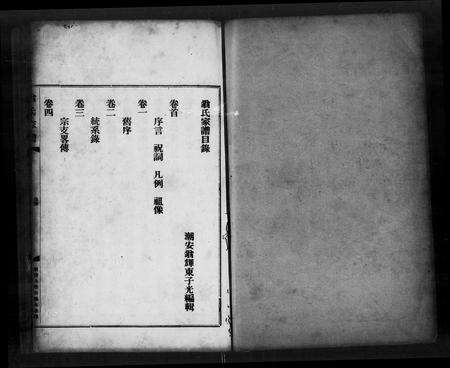 翁氏家譜目錄
潮安翁輝東子光編輯
卷首
序言 祝詞 凡例 祖像
卷一
舊序
卷二
統系錄
卷三
宗支畧傳
卷四